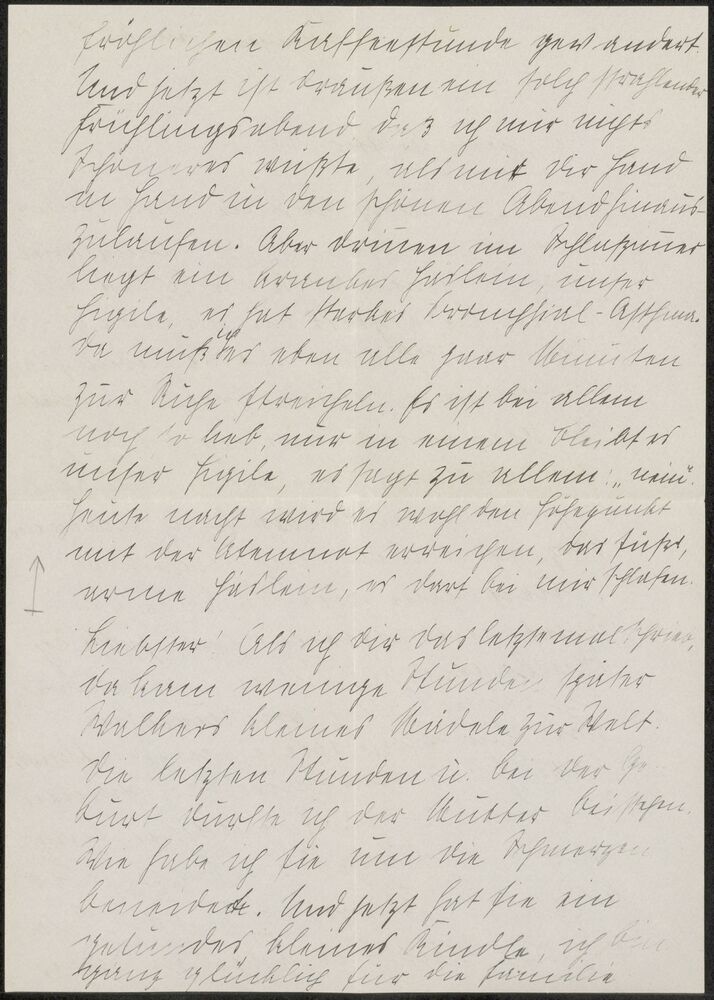 fröhlichen Kaffeestunde gewandert.
Und jetzt ist draußen ein solch strahlender
Frühlingsabend daß ich mir nichts
Schöneres wüßte, als mit dir Hand
in Hand in den schönen Abend hinaus-
zulaufen. Aber drinnen im Schlafzimmer
liegt ein krankes Häslein, unser
Gigile, es hat starkes Bronchial-Asthma.
da muß ich's eben alle paar Minuten
zur Ruhe streicheln. Es ist bei allem
noch so lieb, nur in einem bleibt es
unser Gigile, es sagt zu allem: „nein".
Heute nacht wird es wohl den Höhepunkt
mit der Atemnot erreichen, das süße,
arme Häslein, es darf bei mir schlafen.
Liebster! Als ich dir das letztemal schrieb,
da kam wenige Stunden später
Walkers kleines Mädele zur Welt.
Die letzten Stunden u. bei der Ge-
burt durfte ich der Mutter beistehen.
Wie habe ich sie um die Schmerzen
beneidet. Und jetzt hat sie ein
gesundes kleines Kindle, ich bin
ganz glücklich für die Familie